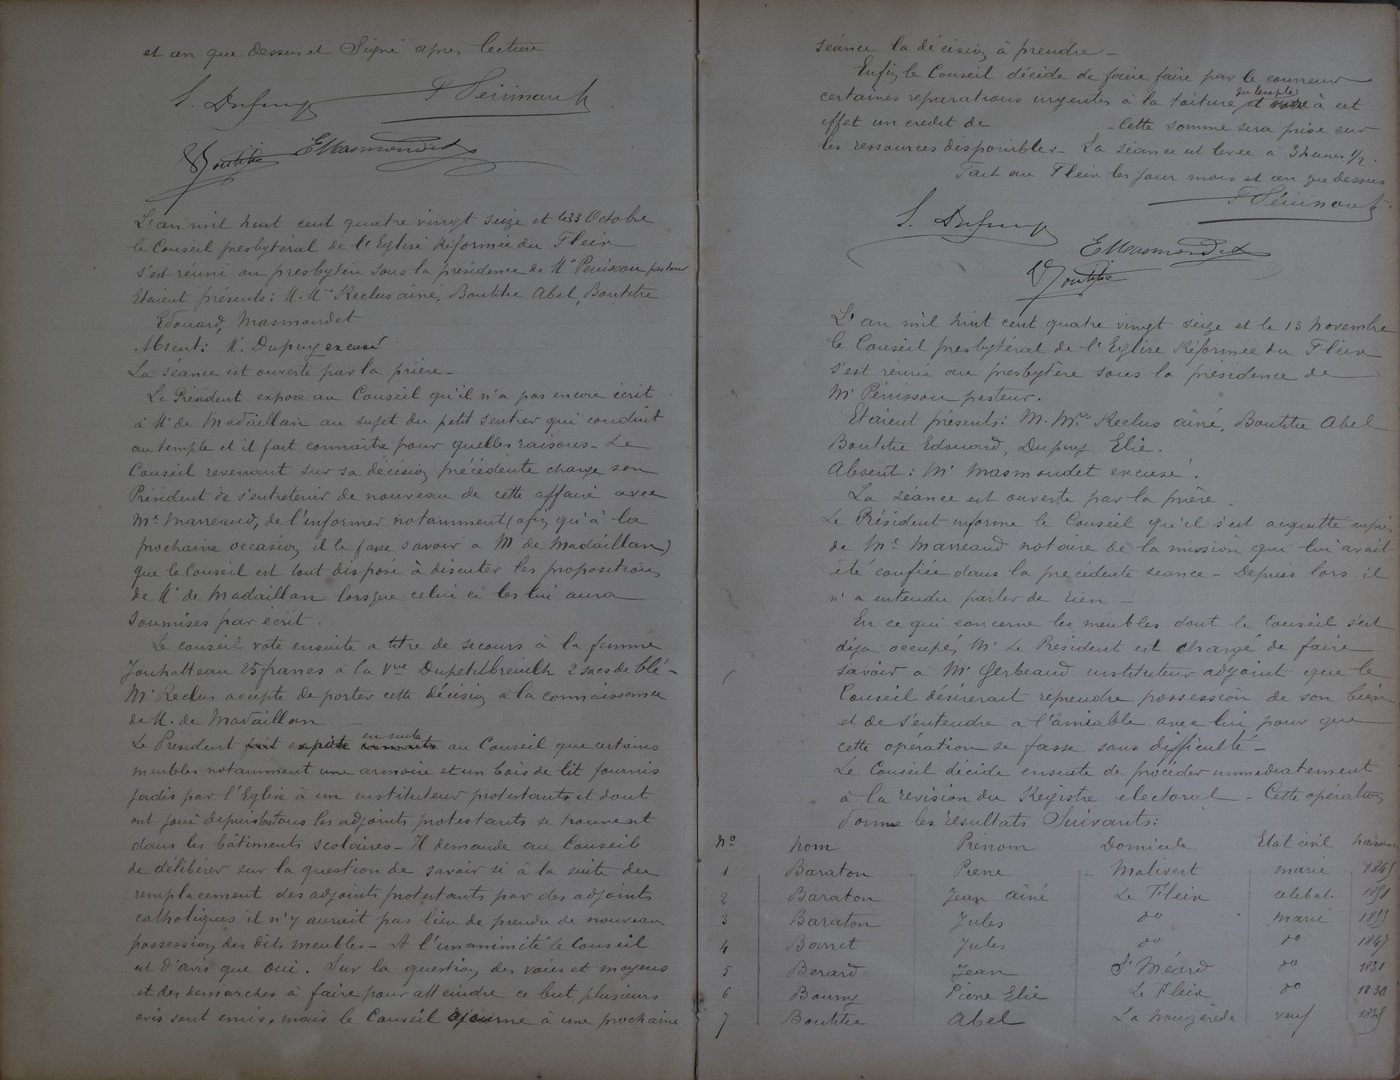 et an que dessus et Signé après lecture
S. Dupuy F Pénissou
Boutitie EMasmondet
L'an mil huit cent quatre vingt seize et le 23 Octobre
le Conseil presbytéral de l'Eglise Réformée du Fleix
s'est réuni au presbytère sous la présidence de Mr Penissou pasteur
Etaient présents: M. Mrs Reclus ainé, Boutitie Abel, Boutitie
Edouard, Masmondet
Absent: M. Dupuy excusé
La séance est ouverte par la prière -
Le Président expose au Conseil qu'il n'a pas encore écrit
à Mr de Madaillan au sujet du petit sentier qui conduit
au temple et il fait connaître pour quelles raisons - Le
Conseil revenant sur sa décision précédente charge son
Président de s'entretenir de nouveau de cette affaire avec
Mr Marreaud, de l'informer notamment (afin qu'à la
prochaine occasion il le fasse savoir a M de Madaillan)
que le Conseil est tout disposé à discuter les propositions
de Mr de Madaillan lorsque celui ci les lui aura
soumises par écrit.
Le conseil vote ensuite a titre de secours à la femme
Jonhatteau 25 francs a la Vve Dupetitbreuilh 2 sacs de blé -
Mr Reclus accepte de porter cette décision à la connaissance
de M. de Madaillan
Le Président fait expose ensuite au Conseil que certains
meubles notamment une armoire et un bois de lit fournis
jadis par l'Eglise à un instituteur protestant et dont
ont joui depuis tous les adjoints protestants se trouvent
dans les bâtiments scolaires - Il demande au Conseil
de délibérer sur la question de savoir si à la suite du
remplacement des adjoints protestants par des adjoints
catholiques il n'y aurait pas lieu de prendre de nouveau
possession des dits meubles - A l'unanimité le Conseil
est d'avis que oui. Sur la question des voies et moyens
et des demarches à faire pour atteindre ce but, plusieurs
avis sont emis, mais le Conseil ajourne à une prochaine
séance la décision à prendre -
Enfin le Conseil décide de faire faire par le couvreur
certaines reparations urgentes à la toiture du temple et vote à cet
effet un credit de - Cette somme sera prise sur
les ressources disponibles - La séance est levée a 3 heures 1/2.
Fait au Fleix les jour mois et an que dessus
F Pénissou
S. Dupuy
EMasmondet
Boutitie
L'an mil huit cent quatre vingt seize et le 13 Novembre
le Conseil presbytéral de l'Eglise Réformée du Fleix
s'est réuni au presbytère sous la présidence de
Mr Pénissou pasteur.
Etaient présents: M. Mrs Reclus aîné, Boutitie Abel
Boutitie Edouard, Dupuy Elie.
Absent: Mr Masmondet excusé.
La séance est ouverte par la prière.
Le Président informe le Conseil qu'il s'est acquitté auprès
de Mr Marreaud notaire de la mission qui lui avait
été confiée dans la precédente seance - Depuis lors il
n'a entendu parler de rien -
En ce qui concerne les meubles dont le Conseil s'est
déja occupé, Mr Le Président est chargé de faire
savoir a Mr Gerbeaud instituteur adjoint que le
Conseil désirerait reprendre possession de son bien
et de s'entendre a l'amiable avec lui pour que
cette opération se fasse sans difficulté -
Le Conseil décide ensuite de procéder immédiatement
à la revision du Registre electoral - Cette opération
donne les résultats Suivants:
No Nom Prénom Domicile Etat civil
1 Baraton Pierre Malivert marié 1845
2 Baraton Jean aîné Le Fleix célibat.
3 Baraton Jules do marié
4 Jules do do 1847
5 Berard Jean St Méard do 1831
6 Pierre Elie Le Fleix do 1830
7 Boutitie Abel La veuf